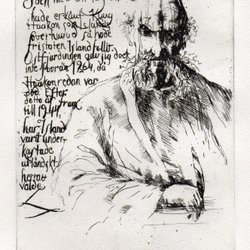 hade erkänt kung
Haakon som Islands
överhuvud så hade
fristaten Island fallit.
Östfjärdingen gav sig dock
inte förrän 1264, då
Haakon redan var
död. Efter
detta fram
till 1944,
har Island
varit under-
kastade
utländskt
herra-
välde